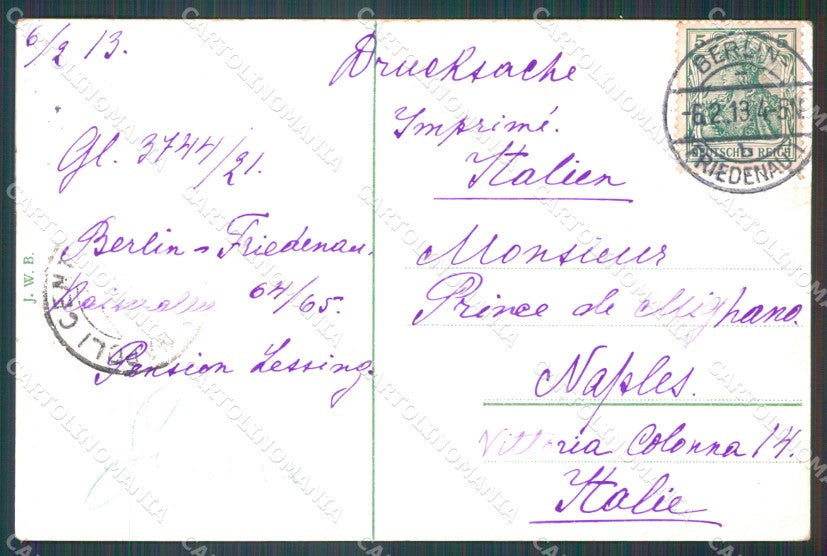 6/2 13.
Gl. 3744/21.
Berlin-Friedenau.
64/65.
Pension Lessing.
J. W. B.
NAPOLI C
Drucksache
Imprimé.
Italien
Monsieur
Prince de Mignano.
Naples.
Vittoria Colonna 14.
Italie
5 5
DEUTSCHES REICH
BERLIN-
-6.2.13.4-5N
b
FRIEDENAU 1
CARTOLINOMANIA